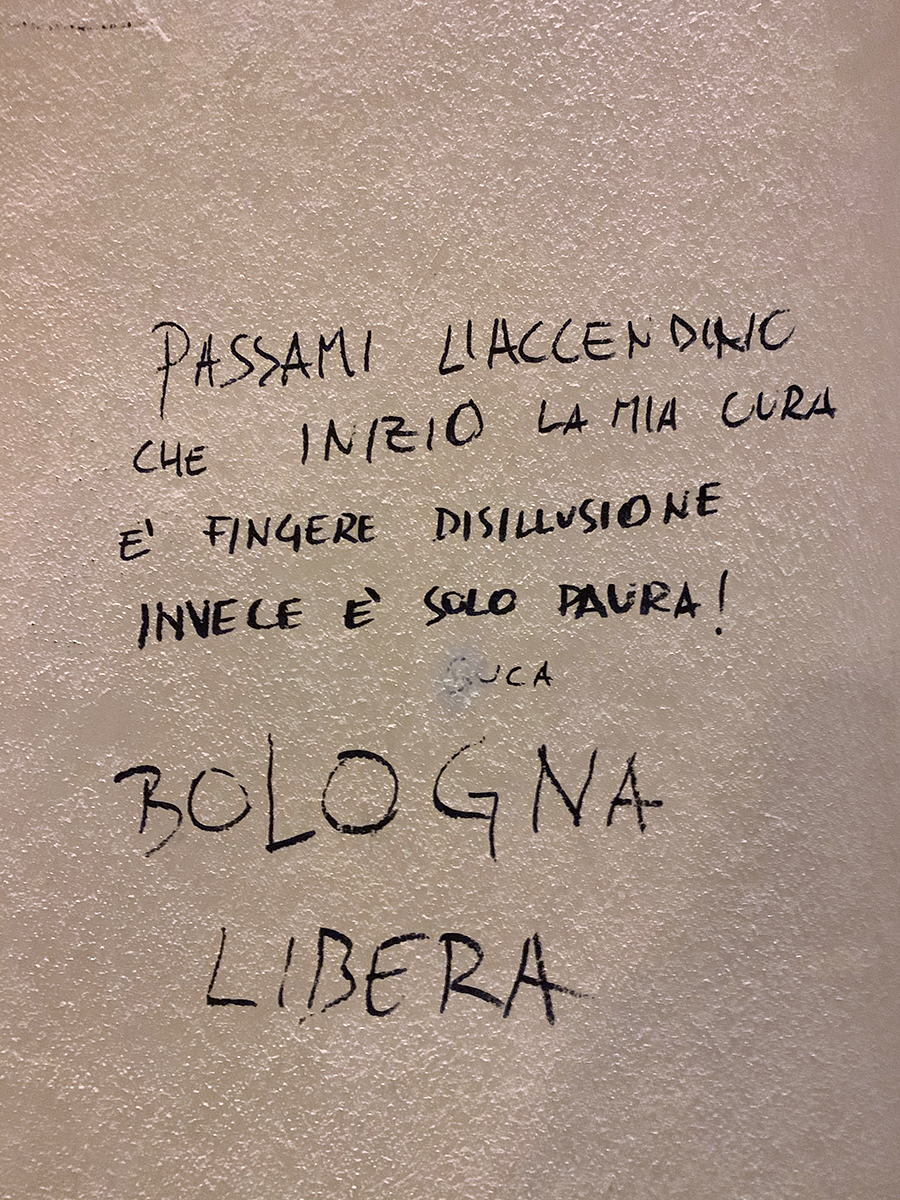 PASSAMI L'ACCENDINO
CHE INIZIO LA MIA CURA
E' FINGERE DISILLUSIONE
INVECE E' SOLO PAURA!
SUCA
BOLOGNA
LIBERA